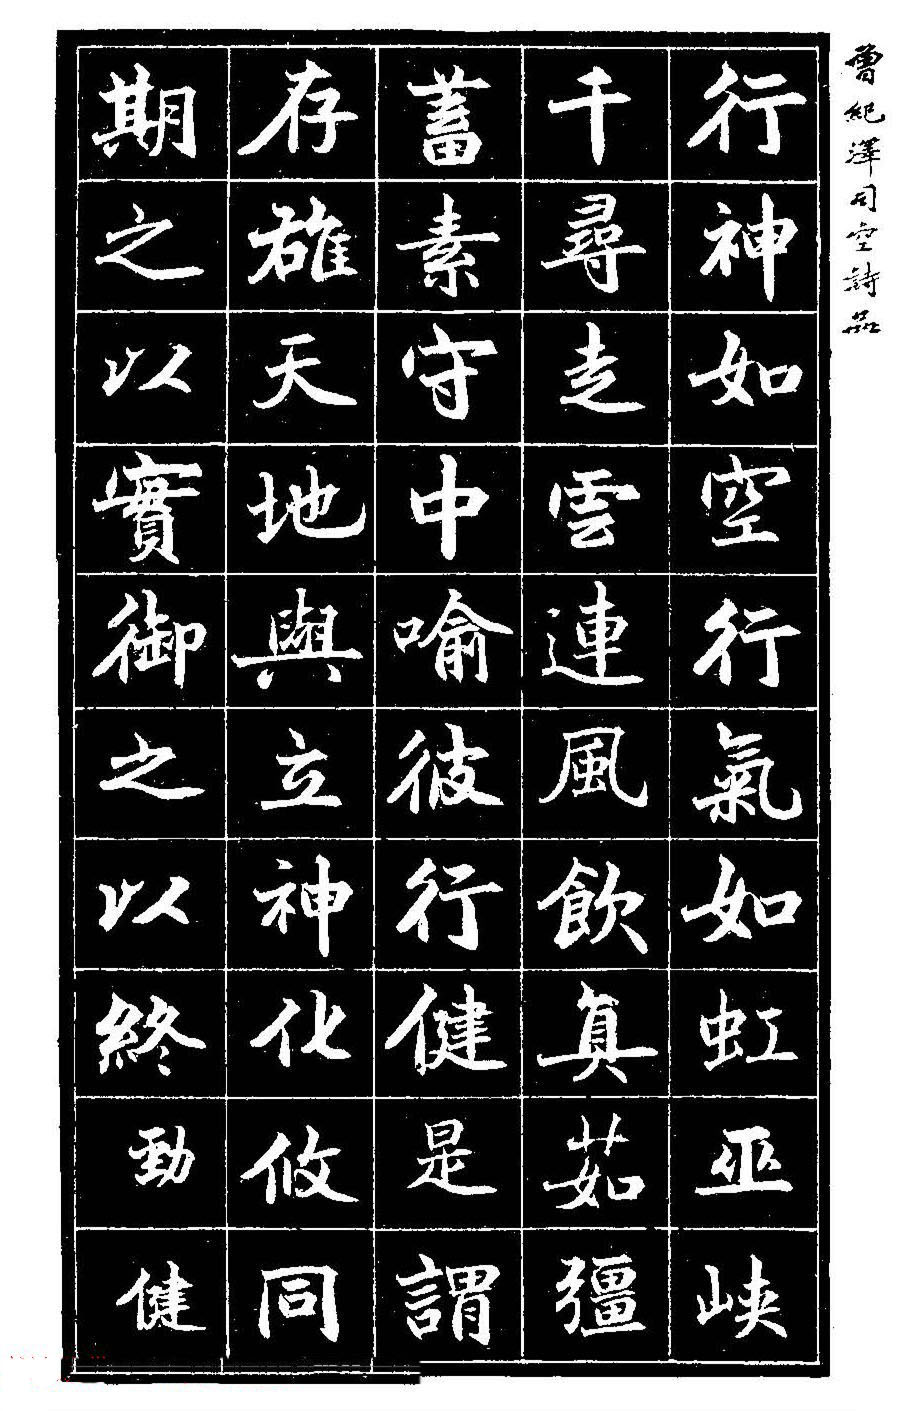 曾紀澤司空詩品
行神如空行氣如虹巫峽
千尋走雲連風飲真茹彊
蓄素守中喻彼行健是謂
存雄天地與立神化攸同
期之以實御之以終勁健